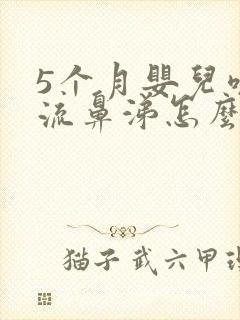 5个月嬰兒
流鼻涕怎麼
猫子武六甲